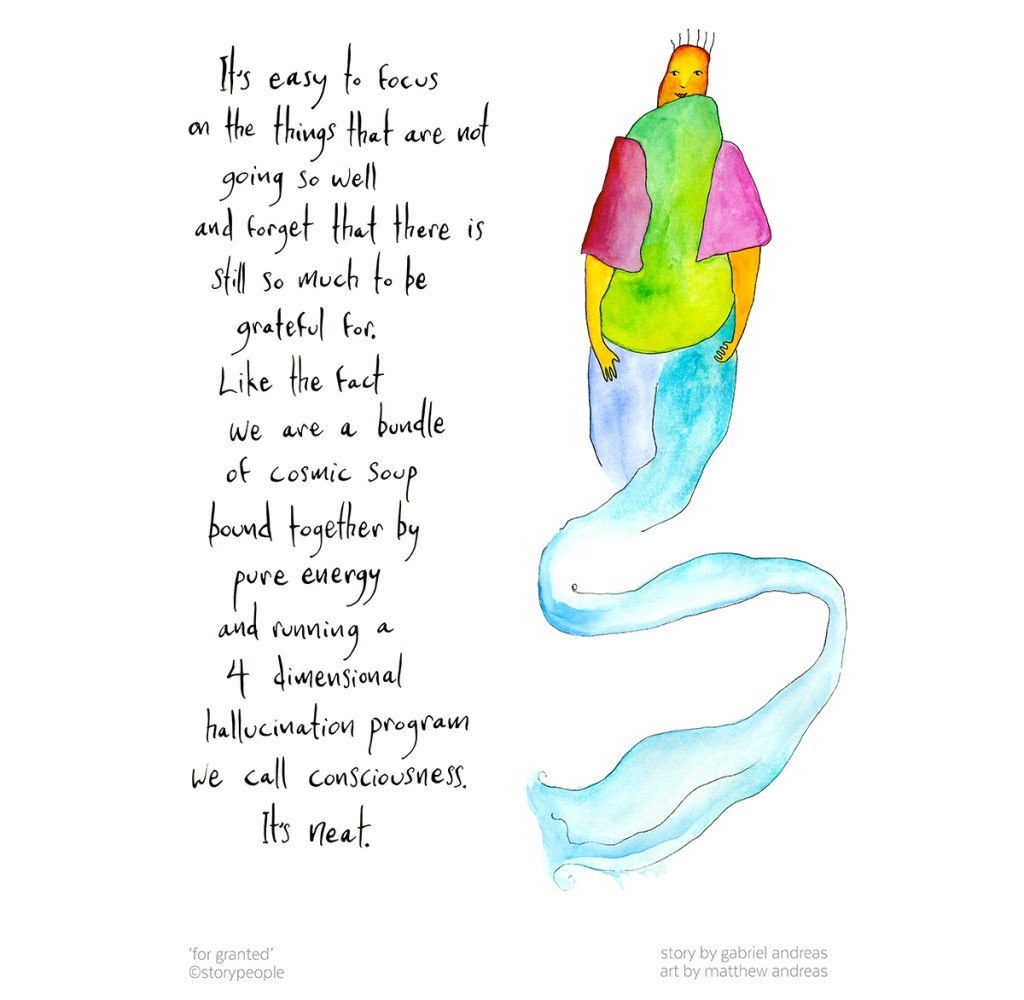 It's easy to focus
on the things that are not
going so well
and forget that there is
still so much to be
grateful for.
Like the fact
we are a bundle
of cosmic soup
bound together by
pure energy
and running a
4 dimensional
hallucination program
we call consciousness.
It's neat.
'for granted'
©storypeople
story by gabriel andreas
art by matthew andreas